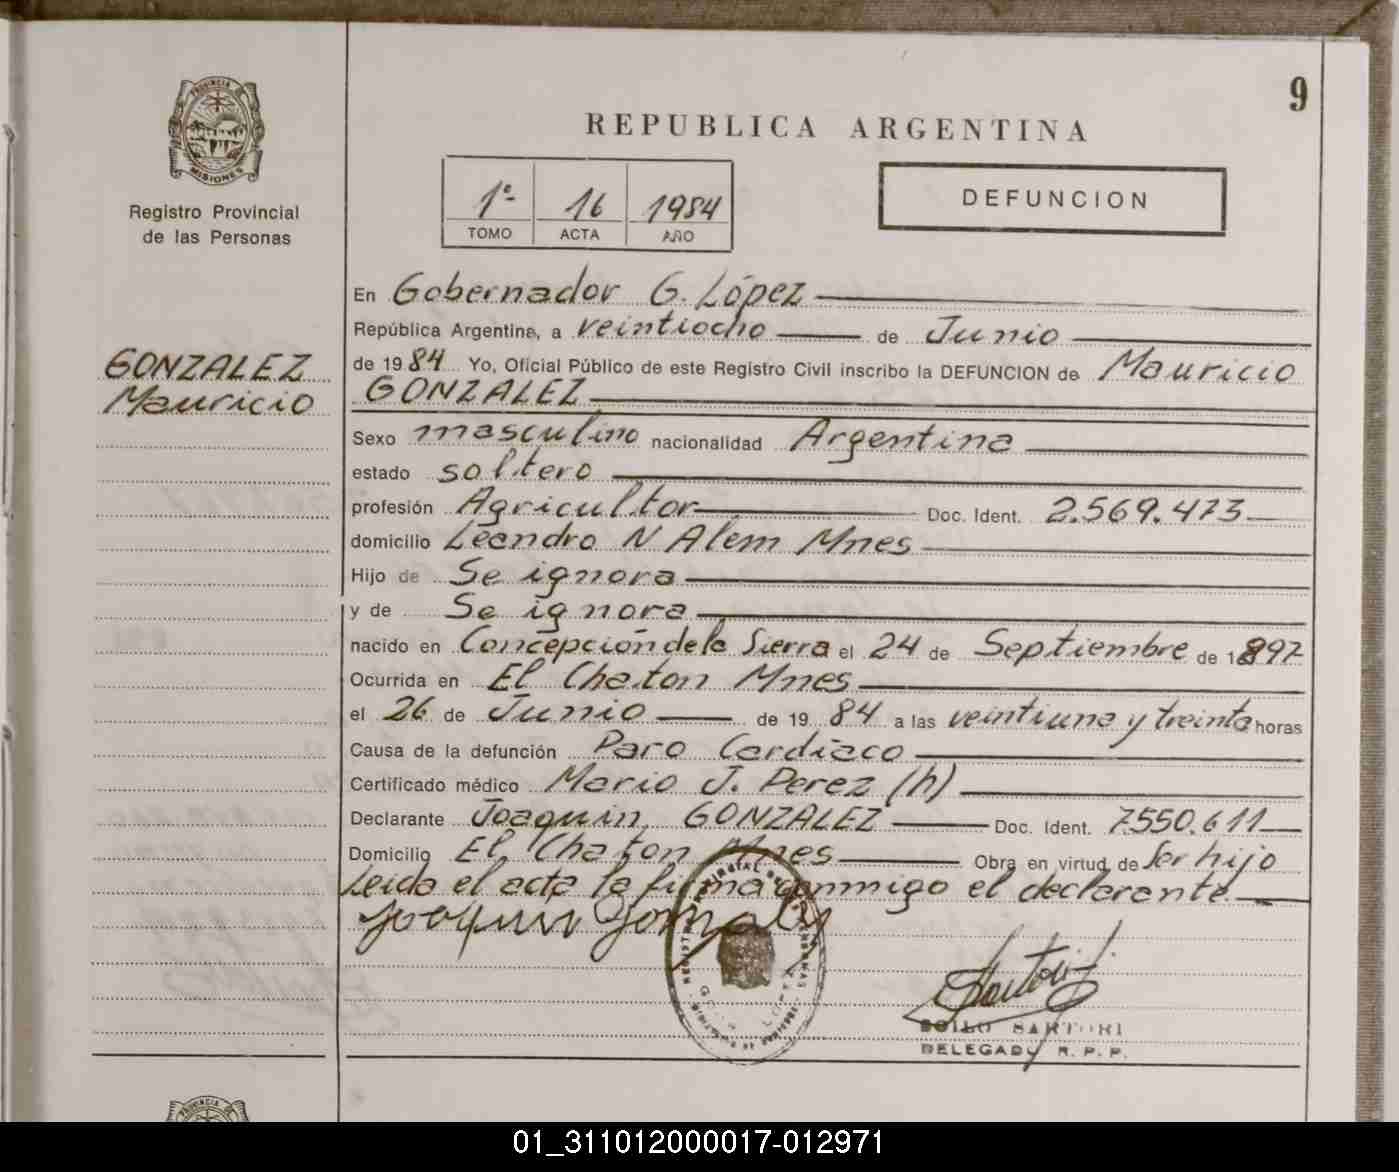 9
PROVINCIA DE
MISIONES
Registro Provincial
de las Personas
REPUBLICA ARGENTINA
1º- 16 1984
TOMO ACTA AÑO
DEFUNCION
GONZALEZ
Mauricio
En Gobernador G. López
República Argentina, a veintiocho de Junio
de 1984 Yo, Oficial Público de este Registro Civil inscribo la DEFUNCION de Mauricio
GONZALEZ
Sexo masculino nacionalidad Argentina
estado soltero
profesión Agricultor Doc. Ident. 2.569.473
domicilio Leandro N Alem Mnes
Hijo de Se ignora
y de Se ignora
nacido en Concepción de la Sierra el 24 de Septiembre de 1897
Ocurrida en El Chaton Mnes
el 26 de Junio de 1984 a las veintiuna y treinta horas
Causa de la defunción Paro Cardiaco
Certificado médico Mario J. Perez (h)
Declarante Joaquin GONZALEZ Doc. Ident. 7.550.611
Domicilio El Chaton Mnes Obra en virtud de Ser hijo
Leida el acta la firma conmigo el declarante
Joaquin Gonzalez
Sartori
SARTORI
DELEGADO R. P. P.
01_311012000017-012971